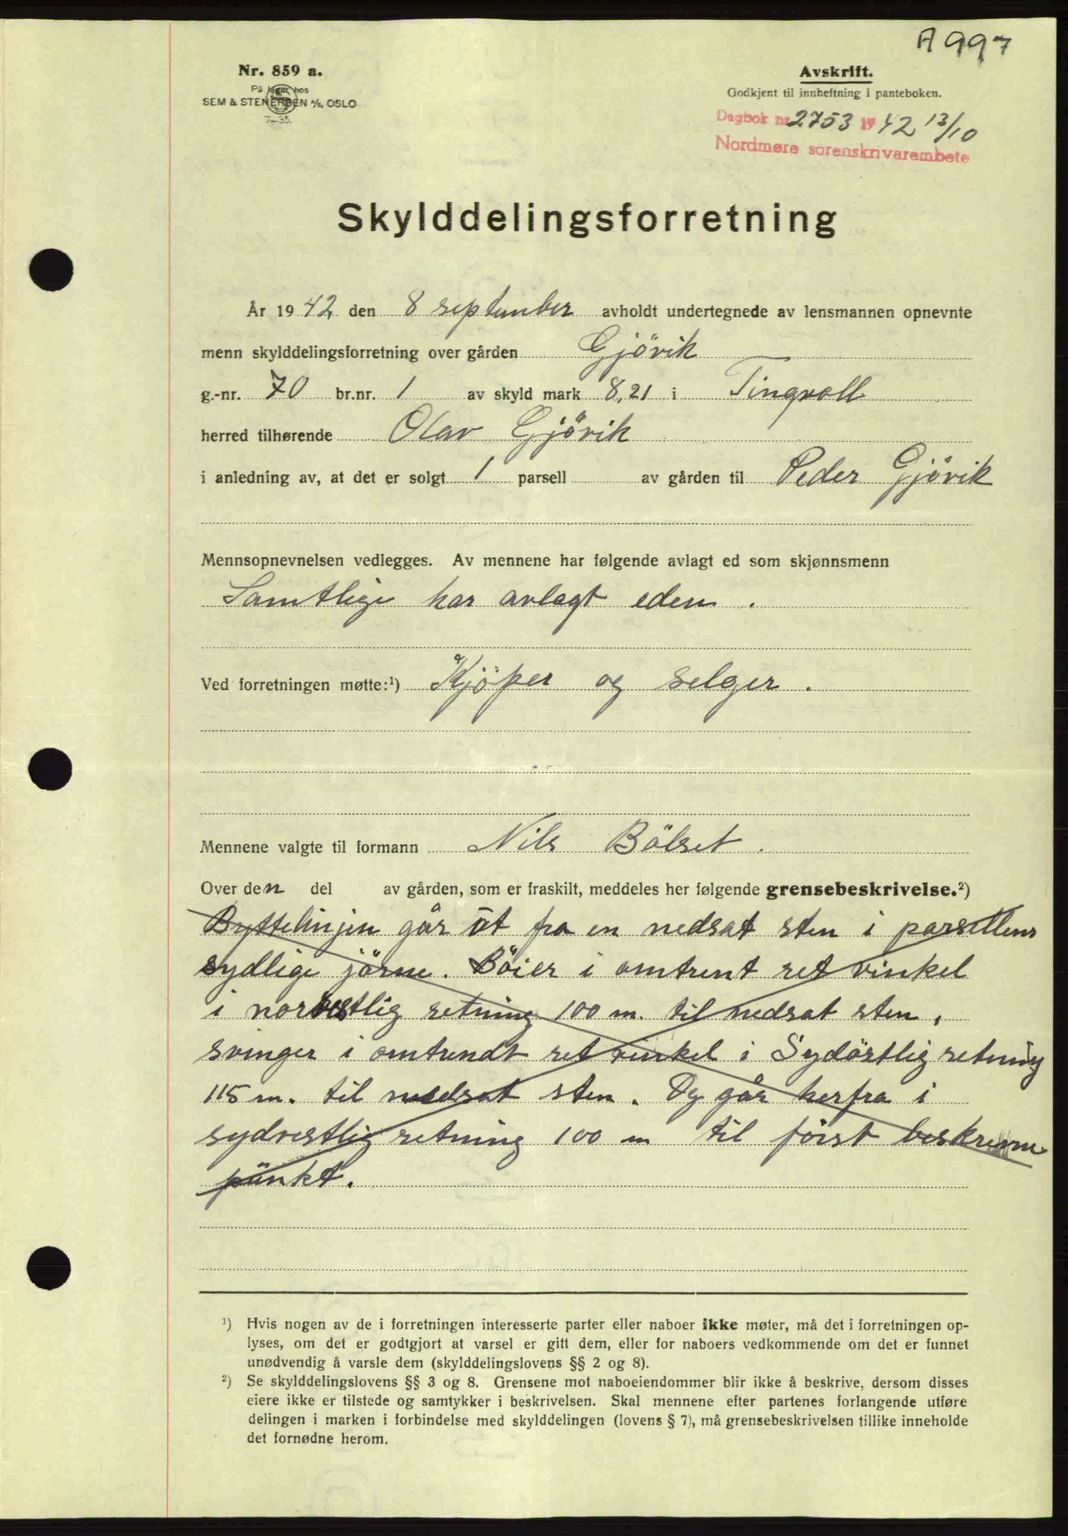 A 997
Nr. 859 a.
På lager hos
SEM & STENERSEN A/S, OSLO
7—35.
Avskrift.
Godkjent til innheftning i panteboken.
Dagbok nr. 2753 1942 13/10
Nordmøre sorenskrivarembete
Skylddelingsforretning
År 1942 den 8 september avholdt undertegnede av lensmannen opnevnte
menn skylddelingsforretning over gården Gjövik
g.-nr. 70 br.nr. 1 av skyld mark 8,21 i Tingvoll
herred tilhørende Olav Gjövik
i anledning av, at det er solgt 1 parsell av gården til Peder Gjövik
Mennsopnevnelsen vedlegges. Av mennene har følgende avlagt ed som skjønnsmenn
Samtlige har avlagt eden.
Ved forretningen møtte:¹) Kjöper og selger.
Mennene valgte til formann Nils Bölset.
Over den del av gården, som er fraskilt, meddeles her følgende grensebeskrivelse.²)
Byttelinjen går ut fra en nedsat sten i parsellens
sydlige jörne. Böier i omtrent ret vinkel
i norvestlig retning 100 m. til nedsat sten,
svinger i omtrendt ret vinkel i Sydöstlig retning
115 m. til nedsat sten. Og går herfra i
sydvestlig retning 100 m til först beskrevne
punkt.
¹) Hvis nogen av de i forretningen interesserte parter eller naboer ikke møter, må det i forretningen op-
lyses, om det er godtgjort at varsel er gitt dem, eller for naboers vedkommende om det er funnet
unødvendig å varsle dem (skylddelingslovens §§ 2 og 8).
²) Se skylddelingslovens §§ 3 og 8. Grensene mot naboeiendommer blir ikke å beskrive, dersom disses
eiere ikke er tilstede og samtykker i beskrivelsen. Skal mennene efter partenes forlangende utføre
delingen i marken i forbindelse med skylddelingen (lovens § 7), må grensebeskrivelsen tillike inneholde
det fornødne herom.